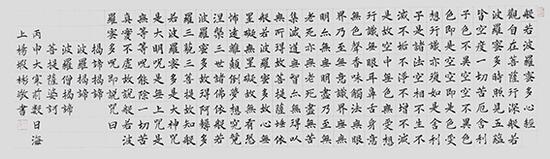 般若波羅蜜多心經
觀自在菩薩行深般若
波羅蜜多時照見五蘊
皆空度一切苦厄舍利
子色不異空空不異色
色即是空空即是色受
想行識亦復如是舍利
子是諸法空相不生不
滅不垢不淨不增不減
是故空中無色無受想
行識無眼耳鼻舌身意
無色聲香味觸法無眼
界乃至無意識界無無
明亦無無明盡乃至無
老死亦無老死盡無苦
集滅道無智亦無得以
無所得故菩提薩埵依
般若波羅蜜多故心無
罣礙無罣礙故無有恐
怖遠離顛倒夢想究竟
涅槃三世諸佛依般若
波羅蜜多故得阿耨多
羅三藐三菩提故知般
若波羅蜜多是大神咒
是大明咒是無上咒是
無等等咒能除一切苦
真實不虛故說般若波
羅蜜多咒即說咒曰
揭諦揭諦
波羅揭諦
波羅僧揭諦
菩提薩婆訶
丙申大寒前數日海
上楊敬書